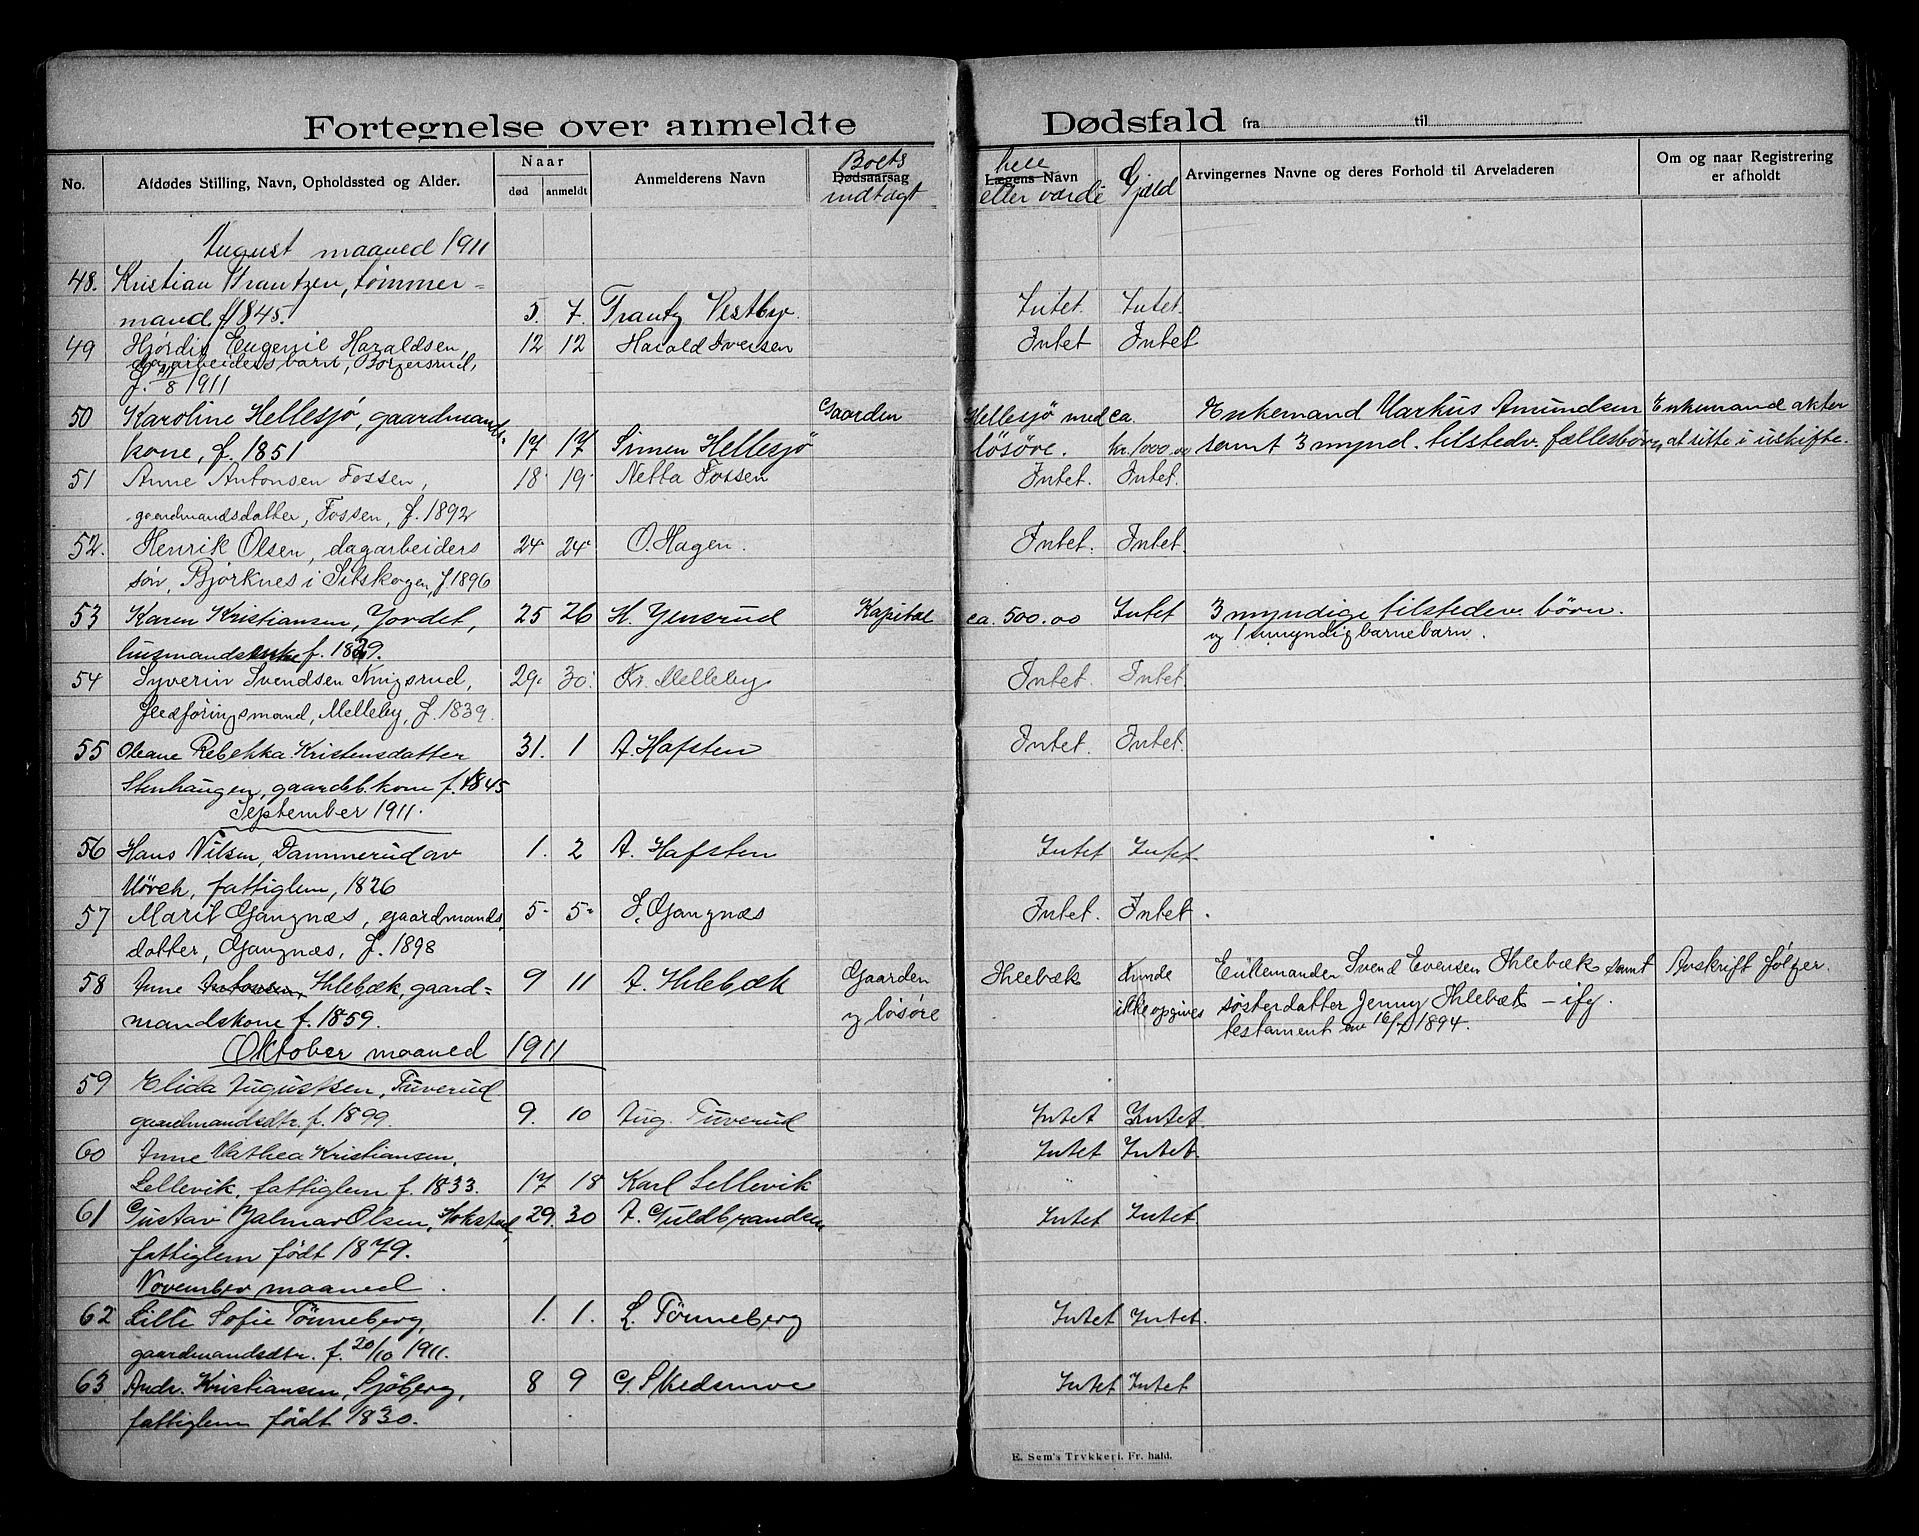 Fortegnelse over anmeldte Dødsfald fra til
No. Afdødes Stilling, Navn, Opholdssted og Alder. Naar død anmeldt Anmelderens Navn Dødsaarsag Boets indtægt Lægens Navn eller værdi Gjæld Arvingernes Navne og deres Forhold til Arveladeren Om og naar Registrering er afholdt
August maaned 1911
48. Kristian Frantzen, tømmer=
mand f 1845. 5. 7. Frantz Vestby. Intet. Intet.
49 Hjørdis Eugenie Haraldsen 12 12 Harald Iversen Intet Intet
dagarbeidersbarn, Borgersrud,
f. /8 1911
50 Karoline Hellesjø, gaardmands- Gaarden Hellesjø med ca. Enkemand Markus Amundsen Enkemand akter
kone, f. 1851 17 17 Simen Hellesjø løsøre. kr. 1000.00 samt 3 mynd. tilstedev. fællesbørn, at sitte i uskifte.
51 Anne Antonsen Fossen, 18 19 Netta Fossen Intet. Intet.
gaardmandsdatter, Fossen, f. 1892
52. Henrik Olsen, dagarbeiders 24 24 O. Hagen. Intet. Intet.
søn, Bjørknes i Setskogen, f 1896
53 Karen Kristiansen, Jordet, 25 26 H. Jensrud Kapital ca. 500.00 Intet 3 myndige tilstedev. børn.
husmandsenke f. 1829. og 1 umyndig barnebarn.
54 Syverin Svendsen Kingsrud, 29. 30. Kr. Melleby Intet. Intet.
Fledføringsmand, Melleby, f. 1839.
55 Oleane Rebekka Kristensdatter 31. 1 A. Hafsten Intet. Intet.
Stenhaugen, gaardb. kone f. 1845
September 1911.
56 Hans Nilsen, Dammerud av 1. 2 A. Hafsten Intet Intet.
Mörch, fattiglem, 1826
57 Marit Gangnæs, gaardmands 5 5 Gangnæs Intet. Intet.
datter, Gangnæs, f. 1898
58 Anne Antonsen, Ihlebæk, gaard= 9 11 A. Ihlebæk Gaarden Ihlebæk Kunde Enkemanden Svend Evensen Ihlebæk samt Avskrift følger.
mandskone f. 1859. og løsøre ikke opgives søsterdatter Jenny Ihlebæk – ifg.
testament av 16/7 1894.
Oktober maaned 1911
59 Elida Augustsen, Tuverud
gaardmandsdtr. f. 1899. 9. 10 Aug. Tuverud Intet Intet.
60 Anne Mathea Kristiansen, Intet Intet.
Lellevik, fattiglem f. 1833. 17 18 Karl Lellevik
61 Gustav Jalmar Olsen, Hokstad, 29. 30 A. Guldbrandsen Intet Intet.
fattiglem født 1879.
November maaned.
62 Lilli Sofie Tönneberg, 1. 1. L. Tönneberg Intet Intet.
gaardmandsdtr. f. 20/10 1911.
63 Andr. Kristiansen, Sjöberg, 8 9 G. Skedsmoe Intet Intet
fattiglem født 1830.
E. Sem's Trykkeri. Fr.hald.